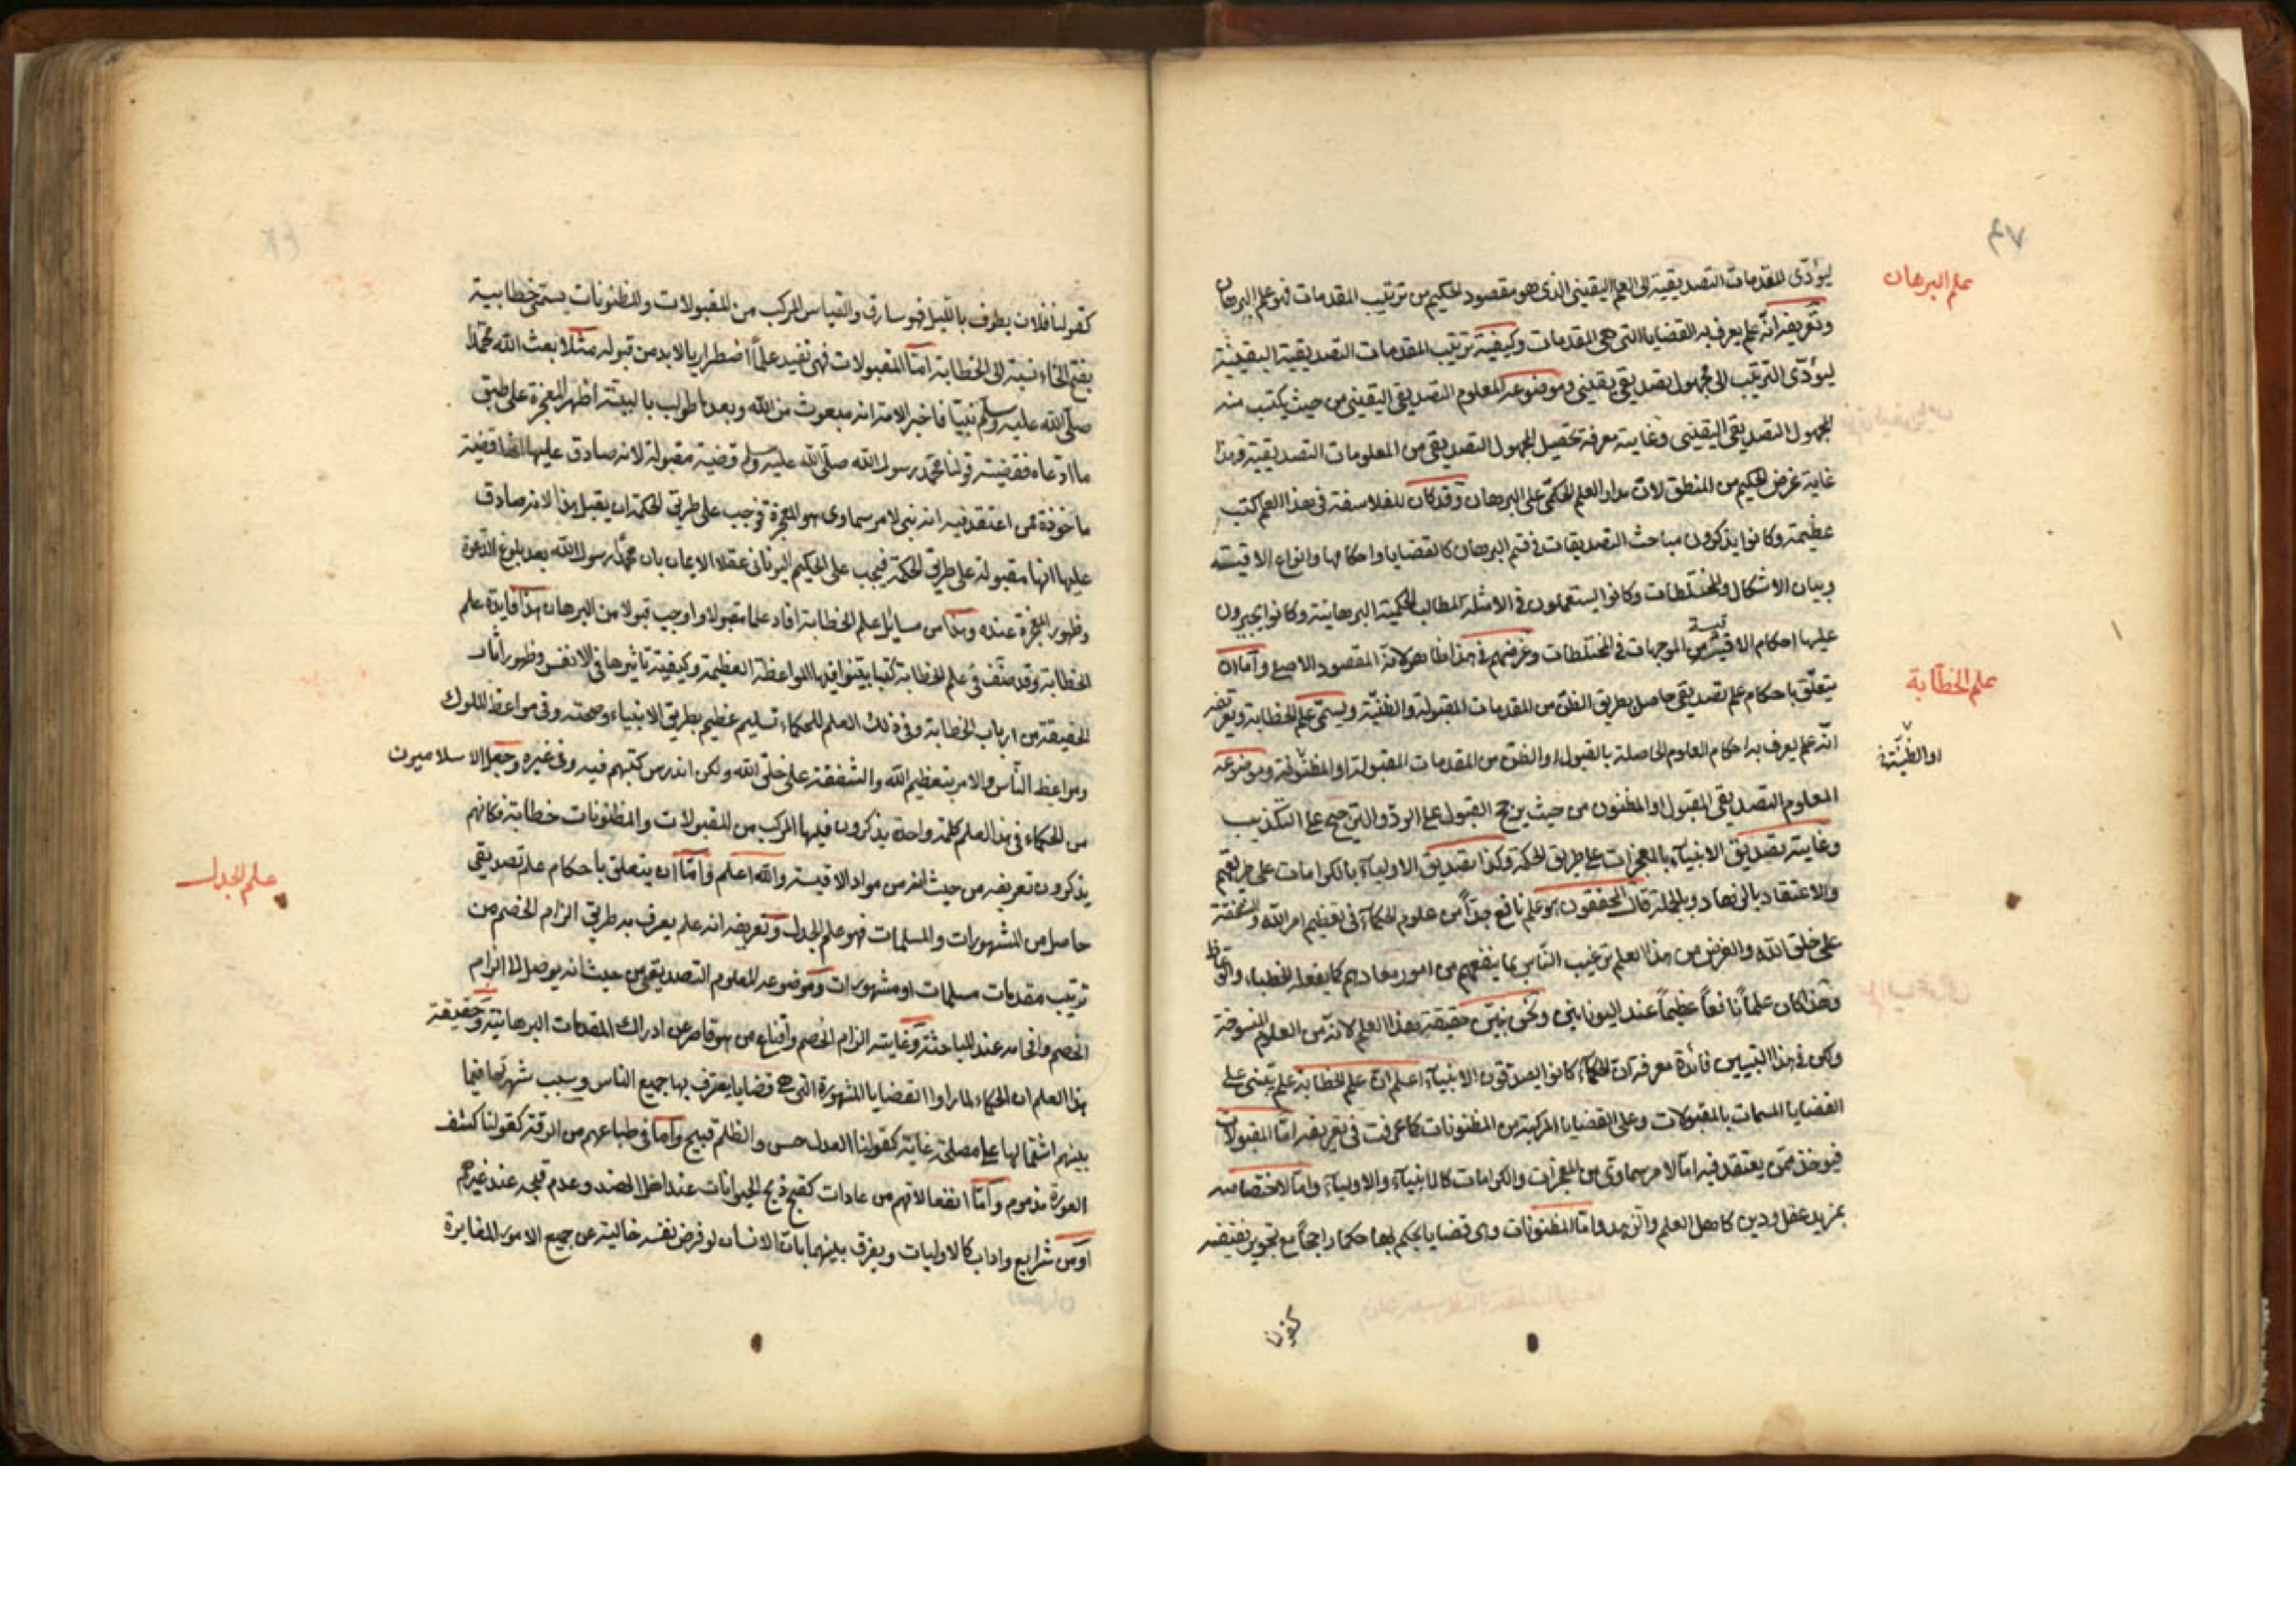 ٤٧
علم البرهان
ليؤدّى المقدمات التصديقية الى العلم اليقينى الذى هو مقصود الحكيم من ترتيب المقدمات فهو علم البرهان
وتعريفه انه علم يعرف به القضايا التى هى المقدمات وكيفية ترتيب المقدمات التصديقية اليقينية
ليؤدّى الترتيب الى مجهول تصديقى يقينى وموضوعه المعلوم التصديقى اليقينى من حيث يكتسب منه
المجهول التصديقى اليقينى وغايته معرفة تحصيل المجهول التصديقى من المعلومات التصديقية وهذا
غاية غرض الحكيم من المنطق لان مدار العلم الحكمى على البرهان وقد كان للفلاسفة فى هذا العلم كتب
عظيمة وكانوا يذكرون مباحث التصديقات فى قسم البرهان كالقضايا واحكامها وانواع الاقيسة
وبيان الاشكال والمختلطات وكانوا يستعملون فى الامثلة المطالب الحكمية البرهانية وكانوا يجيرون
عليها احكام الاقيسة من الموجهات فى المختلطات وغرضهم فى هذا ظاهر لانه المقصود الاصلى وأما ان
علم الخطابة
يتعلّق باحكام علم تصديقى حاصل بطريق الظن من المقدمات المقبولة والظنيّة ويسمّى علم الخطابة وتعريفه
انّه علم يعرف به احكام العلوم الحاصلة بالقبول او الظن من المقدمات المقبولة او المظنونة وموضوعه
او الظنيّة
المعلوم التصديقى المقبول او المظنون من حيث يرجح القبول على الردّ والترجيح على التكذيب
وغايته تصديق الانبيآء بالمعجزات على طريق الحكمة وكذا تصديق الاوليآء بالكرامات على طريقتهم
والاعتقاد بالزهاد وبالجملة قال المحققون هو علم نافع جدّاً من علوم الحكمآء فى تعظيم امر الله والشفقة
على خلق الله والغرض من هذا العلم ترغيب الناس بما ينفعهم من امور معادهم كما يفعله الخطباء والوعاظ
وهذا كان علماً نافعاً عظيماً عند اليونانيين ونحن نبيّن حقيقة هذا العلم لانه من العلوم المنسوخة
ولكن فى هذا التبيين فائدة معرفة ان الحكمآء كانوا يصدقون الانبيآء اعلم ان علم الخطابة علم يبتنى على
القضايا المسمات بالمقبولات وعلى القضايا المركبة من المظنونات كما عرفت فى تعريفه امّا المقبولات
فيوخذ ممّن يعتقد فيه امّا لامر سماوى من المعجزات والكرامات كالانبيآء والاوليآء وامّا لاختصاصه
بمزيد عقل ودين كاهل العلم والزهد وامّا المظنونات وهى قضايا يحكم بها حكماً راجحاً مع تجويز نقيضه
كقولنا
كقولنا فلان يطوف بالليل فهو سارق والقياس المركب من المقبولات والمظنونات يسمّى خطابية
بفتح الخاء نسبة الى الخطابة امّا المقبولات فهى تفيد علماً اضطراريا لابد من قبوله مثلا بعث الله محمّداً
صلّى الله عليه وسلّم نبيّا فاخبر الامة انه مبعوث من الله وبعد ما طولب بالبينة اظهر المعجزة على طبق
ما ادّعاه فقضية قولنا محمّد رسول الله صلّى الله عليه وسلم قضية مقبولة لانه صادق عليها انها قضية
ماخوذة عمن اعتقد فيه انه نبى لامر سماوى هو المعجزة فيجب على طريق الحكمة ان يقبل هذا لانه صادق
عليها انها مقبولة على طريق الحكمة فيجب على الحكيم اليونانى عقلا الايمان بان محمّداً رسول الله بعد بلوغ الدعوة
وظهور المعجزة عنده وهذا من مسايل علم الخطابة افاد علما مقبولا واوجب قبولا من البرهان هذا فايدة علم
الخطابة وقد صنّف فى علم الخطابة كتبا بيّنوا فيها المواعظة العظيمة وكيفية تاثيرها فى الانفس وظهور اثار
الحقيقة من ارباب الخطابة وفى ذلك العلم للحكماء تسليم عظيم بطريق الانبياء وصحته وفى مواعظ الملوك
ومواعظ النّاس والامر بتعظيم الله والشفقة على خلق الله ولكن اندرس كتبهم فيه وفى غيره وجعل الاسلاميون
من الحكماء فى هذا العلم كلمة واحدة يذكرون فيها المركب من المقبولات والمظنونات خطابة فكانهم
يذكرون تعريفه من حيث انه من مواد الاقيسة والله اعلم وأمّا ان يتعلق باحكام علم تصديقى
علم الجدل
حاصل من المشهورات والمسلمات فهو علم الجدل وتعريفه انه علم يعرف به طريق الزام الخصم من
ترتيب مقدمات مسلمات او مشهورات وموضوعه المعلوم التصديقى من حيث انه يوصل الى الزام
الخصم وافحامه عند المباحثة وغايته الزام الخصم واقناع من هو قاصر عن ادراك المقدمات البرهانية وحقيقة
هذا العلم ان الحكماء لما راوا القضايا المشهورة التى هى قضايا يعترف بها جميع الناس وسبب شهرتها فيما
بينهم اشتمالها على مصلحة عامة كقولنا العدل حسن والظلم قبيح وأما فى طباعهم من الرقة كقولنا كشف
العورة مذموم وامّا انفعالاتهم من عادات كقبح ذبح الحيوانات عند اهل الهند وعدم قبحه عند غيرهم
اومن شرايع واداب كالاوليات ويفرق بينهما بان الانسان لو فرض نفسه خالية عن جميع الامور المغايرة